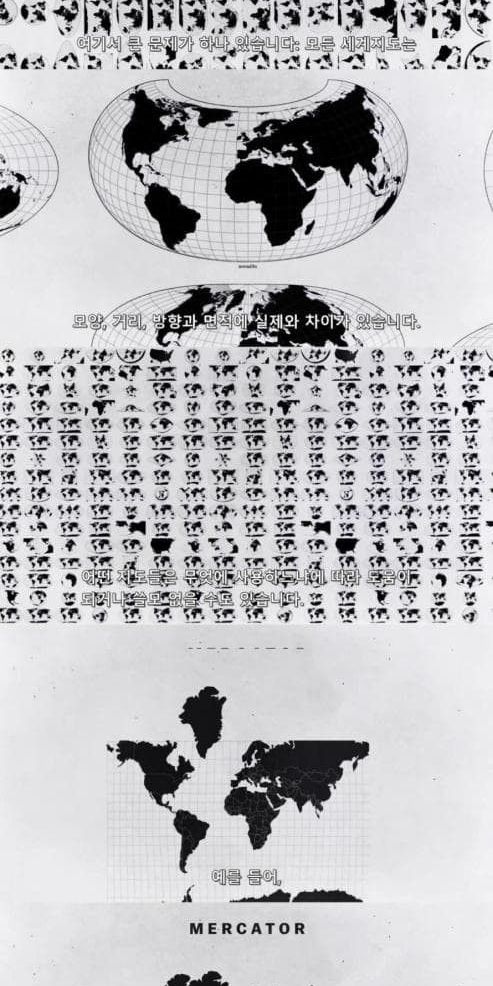 여기서 큰 문제가 하나 있습니다: 모든 세계지도는
모양, 거리, 방향과 면적에 실제와 차이가 있습니다.
어떤 지도들은 무엇에 사용하느냐에 따라 도움이
되거나 쓸모 없을 수도 있습니다.
예를 들어,
MERCATOR